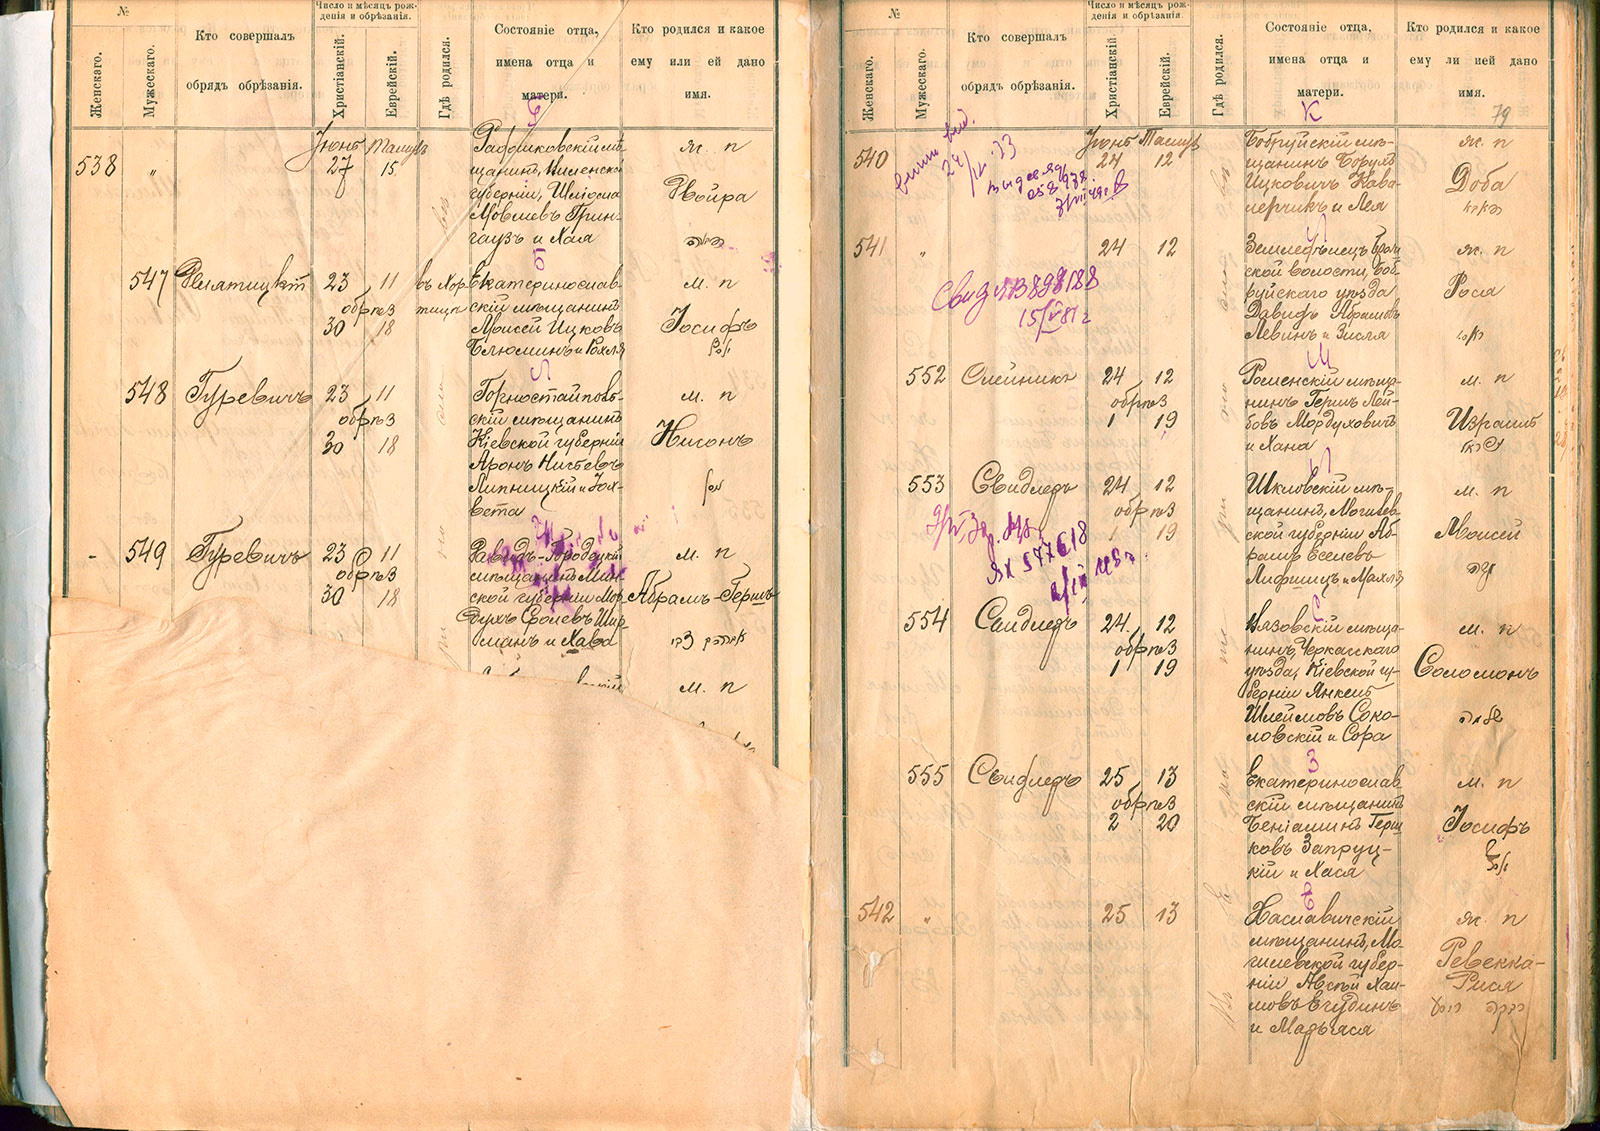 №
Женскаго.
Мужескаго.
Кто совершалъ
обрядъ обрѣзанія.
Число и мѣсяцъ рож-
денія и обрѣзанія.
Христіанскій.
Еврейскій.
Гдѣ родился.
Состояніе отца,
имена отца и
матери.
Кто родился и какое
ему или ей дано
имя.
538
"
Іюнь
27
Тамузъ
15
щанинъ, Виленской
губерніи, Шліома
Мовшевъ Грин-
гаузъ и Хая
ж. п
Двойра
547
23 11
обрѣз
30 18
въ Хор-
тицѣ
Б
Екатеринослав-
скій мѣщанинъ
Моисей Ицковъ
Блюминъ и Рохля
м. п
Іосифъ
548
Гуревичъ
23 11
обрѣз
30 18
Л
Горностайполь-
скій мѣщанинъ
Кіевской губерніи
Аронъ
Липницкій и Іох-
вета
м. п
Нисонъ
549
Гуревичъ
23 11
обрѣз
30 18
Давидъ-Городоцкій
мѣщанинъ Мин-
ской губерніи Мор-
духъ Сролевъ Шир-
манъ и Хава
м. п
Абрамъ-Гершъ
м. п
№
Женскаго.
Мужескаго.
Кто совершалъ
обрядъ обрѣзанія.
Число и мѣсяцъ рож-
денія и обрѣзанія.
Христіанскій.
Еврейскій.
Гдѣ родился.
Состояніе отца,
имена отца и
матери.
Кто родился и какое
ему ли ией дано
имя.
79
540
Іюнь
24
Тамузъ
12
К
Бобруйскій мѣ-
щанинъ Борухъ
Ицковичъ Кава-
лерчикъ и Лея
ж. п
Доба
541
"
24 12
Земледѣлецъ
ской волости, Боб-
руйскаго уѣзда
Давидъ Абрамовъ
Левинъ и Зисля
ж. п
Рося
Свид ЯВ 898188
15/V 81 г
552
Олейникъ
24 12
обрѣз
1 19
М
Роменскій мѣща-
нинъ Гершъ Лей-
бовъ Мордуховичъ
и Хана
м. п
Израиль
553
Свидлеръ
24 12
обрѣз
1 19
Шкловскій мѣ-
щанинъ, Могилев-
ской губерніи Аб-
рамъ Еселевъ
Лифшицъ и Махля
м. п
Моисей
משה
ЯХ 577618
554
Свидлеръ
24 12
обрѣз
1 19
С
Вязовскій мѣща-
нинъ, Черкасскаго
уѣзда, Кіевской гу-
берніи Янкель
Шлеймовъ Соко-
ловскій и Сора
м. п
Соломонъ
שלמה
555
Свидлеръ
25 13
обрѣз
2 20
З
Екатеринослав-
скій мѣщанинъ
Беніаминъ Герш-
ковъ Запруц-
кій и Хася
м. п
Іосифъ
542
"
25 13
Е
Хаславичскій
мѣщанинъ, Мо-
гилевской губер-
ніи Авсѣй Хаи-
мовъ Егудинъ
и Марьяся
ж. п
Ревекка-
Рися